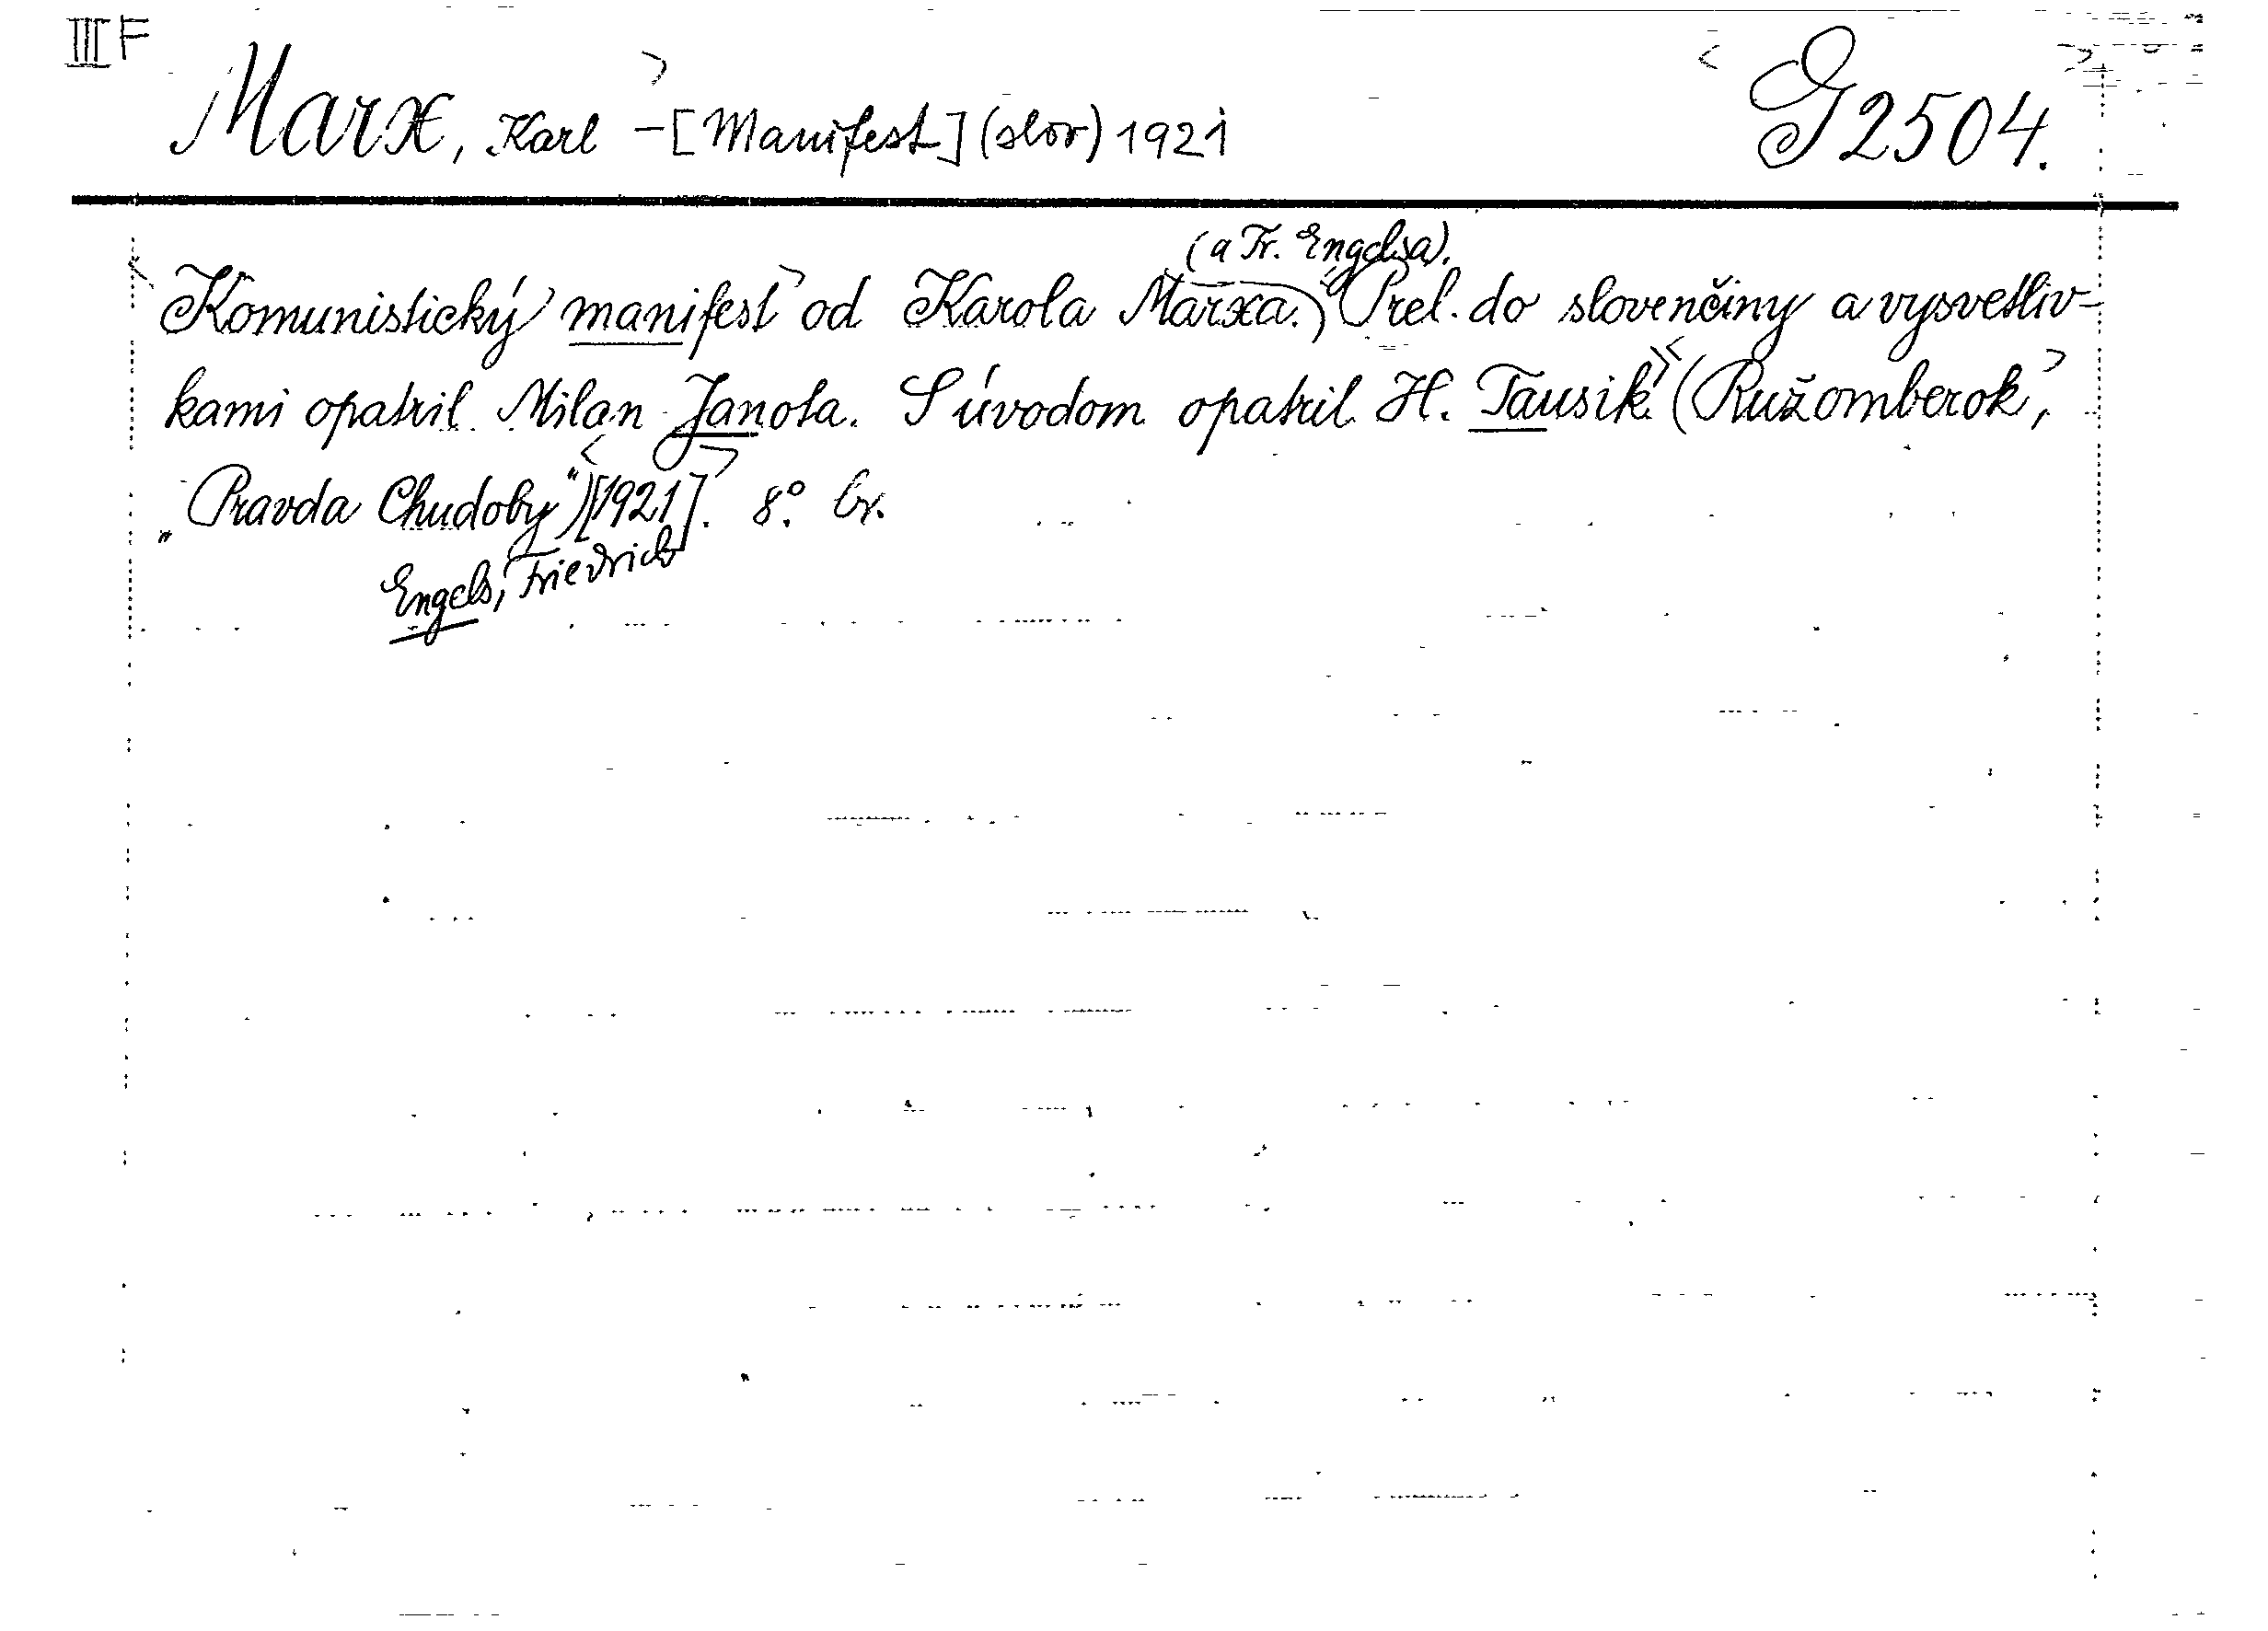 III F
Marx, Karl - [Manifest] (slov) 1921
G 2504.
(a Fr. Engelsa).
Komunistický manifest od Karola Marxa. Prel. do slovenčiny a vysvetliv-
kami opatril Milan Janota. S úvodom opatril H. Tausik. (Ružomberok,
„Pravda Chudoby“) [1921]. 8°. br.
Engels, Friedrich